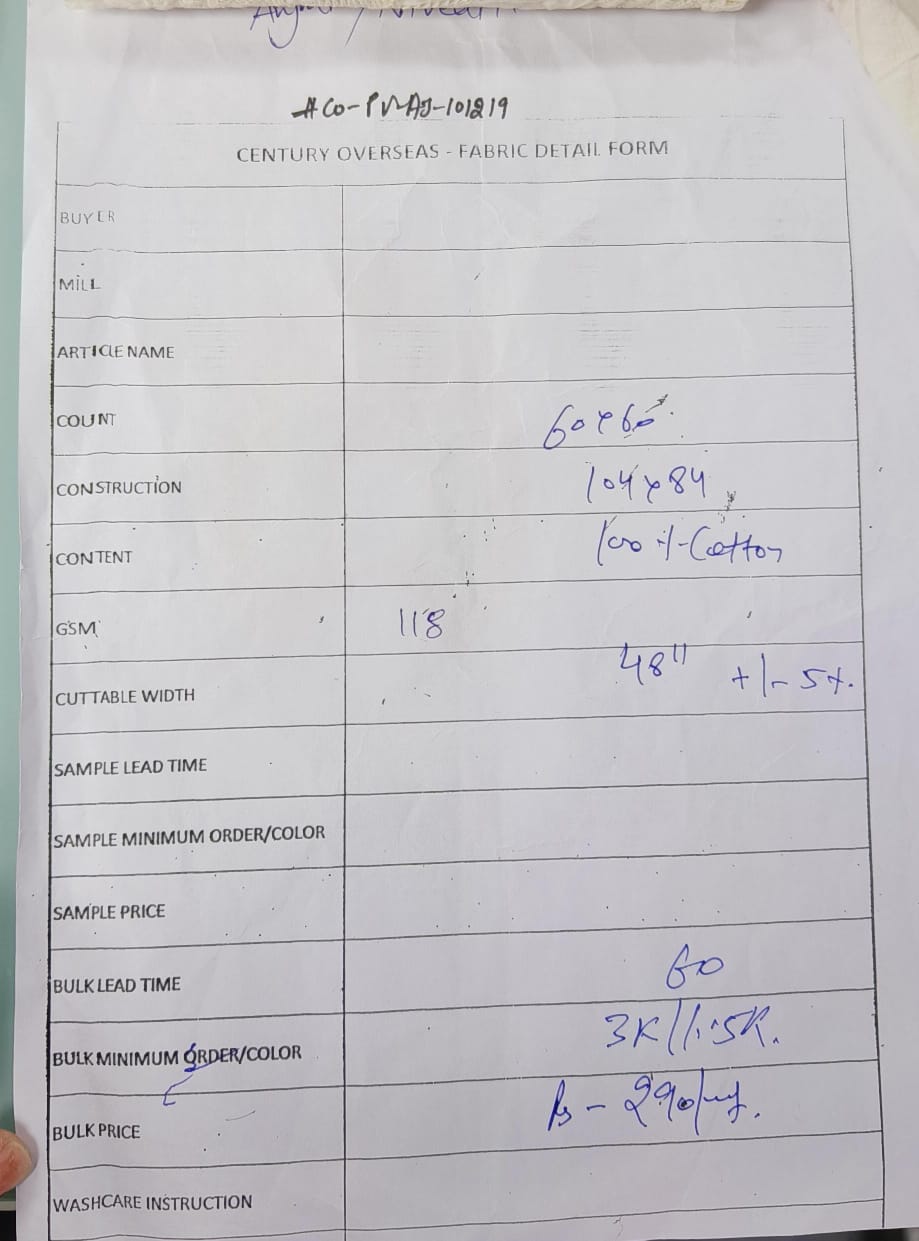 #CO-PVAJ-101219
CENTURY OVERSEAS - FABRIC DETAIL FORM
BUYER
MILL
ARTICLE NAME
COUNT 60x60
CONSTRUCTION 104x84
CONTENT 100%-Cotton
GSM 118
CUTTABLE WIDTH 48" +/-5%
SAMPLE LEAD TIME
SAMPLE MINIMUM ORDER/COLOR
SAMPLE PRICE
BULK LEAD TIME 60
BULK MINIMUM ORDER/COLOR 3K//1.5K.
BULK PRICE Rs - 290/
WASHCARE INSTRUCTION